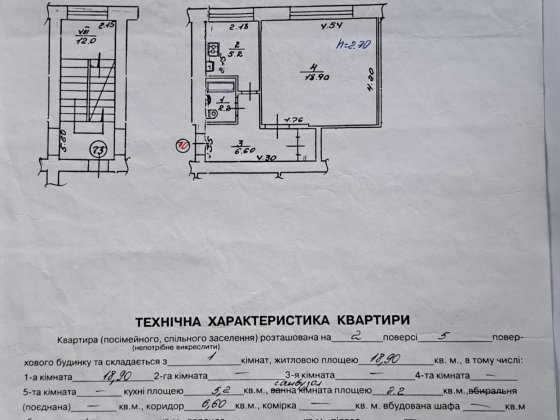 2.15
VIII
12.0
5.80
73
2.18
2
5.2
1
2.2
3
6.60
4.30
72
4.54
h=2.70
4
18.90
4.20
1.76
ТЕХНІЧНА ХАРАКТЕРИСТИКА КВАРТИРИ
Квартира (посімейного, спільного заселення) розташована на 2 поверсі 5 повер-
(непотрібне викреслити)
хового будинку та складається з 1 кімнат, житловою площею 18,90 кв. м., в тому числі:
1-а кімната 18,90 2-га кімната — 3-я кімната — 4-та кімната —
санвузол
5-та кімната — кухні площею 5,2 кв.м., ванна кімната площею 2.2 кв.м., вбиральня
(поєднана) — кв. м., коридор 6,60 кв.м., комірка — кв. м. вбудована шафа — кв.м